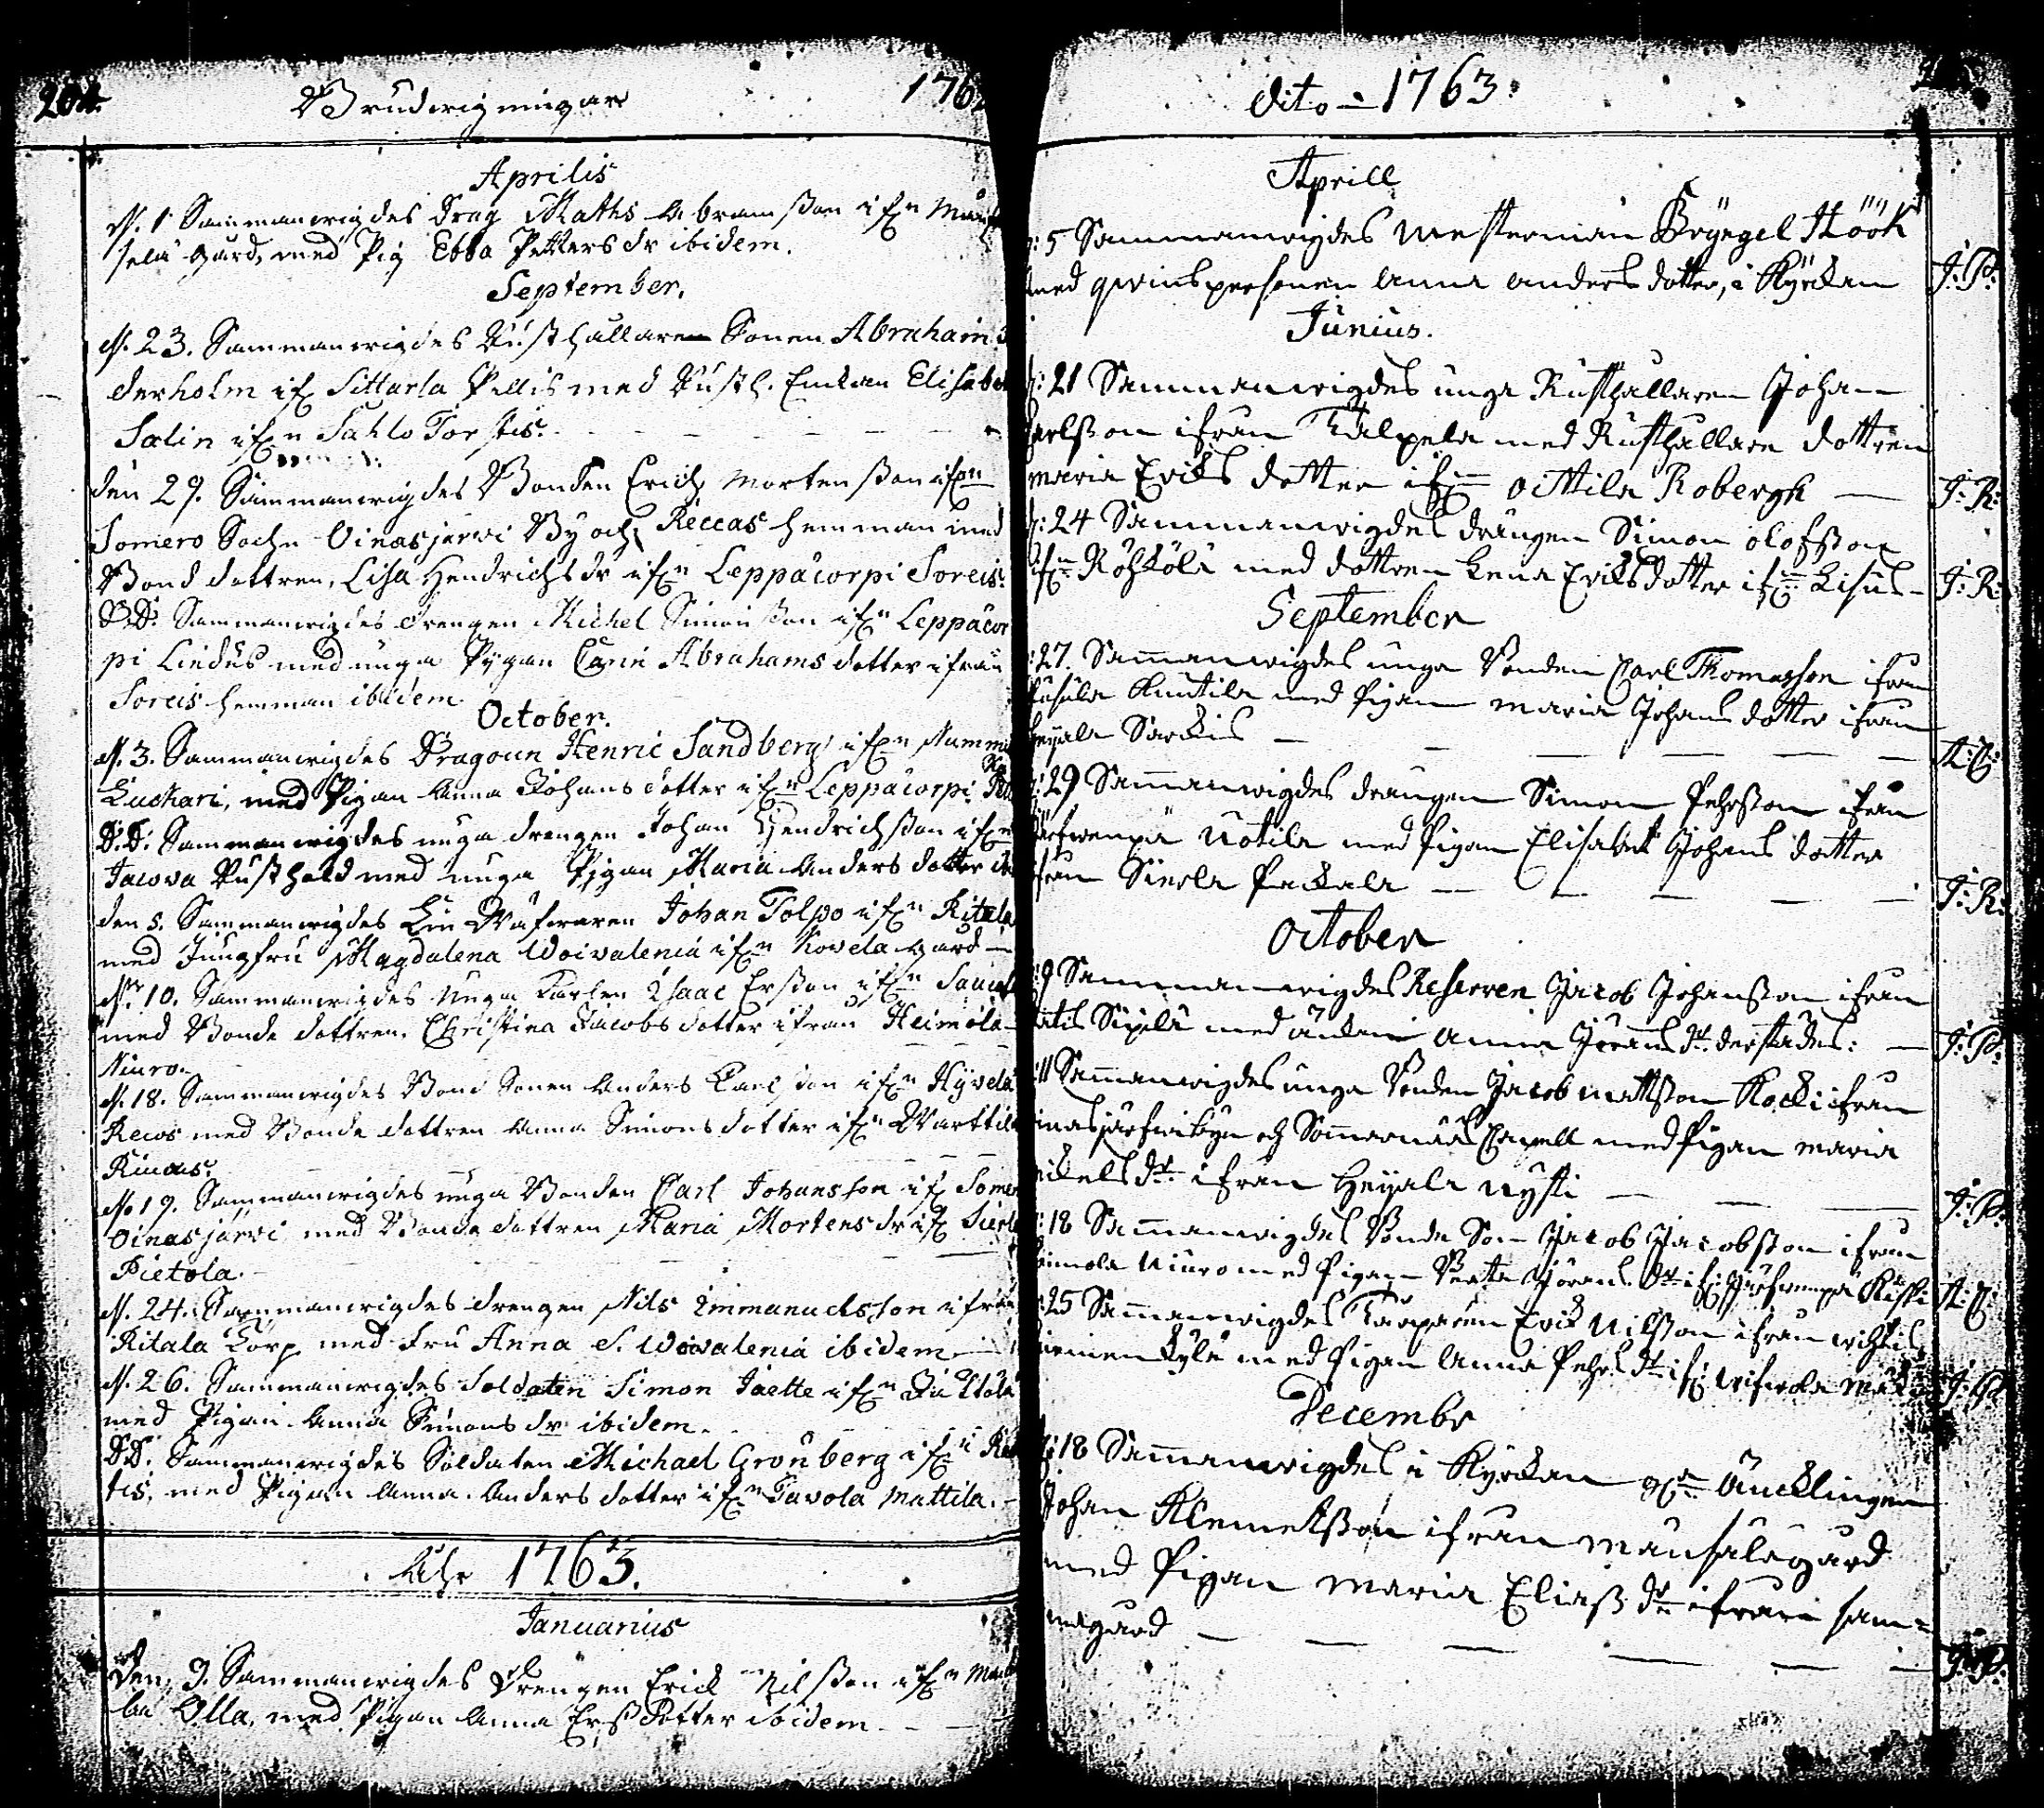 204.
Brudwigningar 1762
Aprilis
d. 1 Sammanwigdes Drag Maths Abramsson ifrn
sela gård, med Pig Ebba Petters dr ibidem.
September.
d. 23. Sammanwigdes Rusthållaren Sonen Abraham
derholm ifr Sittarla Pellis med Rusth. Enckan Elisabet
Salin ifrn Sahlo Torstis.
den 29. Sammanwigdes Bonden Erich Mortensson ifrn
Somero Sochn Oinasjärwi By och Reccas hemman med
Bond dottren, Lisa Hendrichs dr ifrn Leppäcorpi Soreis.
D.D. Sammanwigdes drengen Michel Simonsson ifrn Leppäcor
pi Liedus med unga Pygan Carin Abrahams dotter ifrån
Soreis hemman ibidem
October.
d. 3. Sammanwigdes Dragoun Henric Sandberg ifrn
Luckari, med Pigan Anna Johans dotter ifrn Leppäcorpi
D.D. Sammanwigdes unga drengen Johan Hendrichsson ifrn
Jacova Rusthold med unga Pygan Maria Anders dotter
den 5. Sammanwigdes Johan Tolpo ifrn Ritala
med Jungfru Magdalena Woivalenia ifrn Kovela gård
d. 10. Sammanwigdes unga Karlen Isaac Ersson ifrn
med Bonde dottren. Christina Jacobs dotter ifrån Heimola
Niuro.
d. 18. Sammanwigdes Bond Sonen Anders Carlsson ifrn Hyvelä
Rews med Bonde dottren Anna Simons dotter ifrn Warttila
d. 19. Sammanwigdes unga Bonden Carl Johansson ifr Somero
Oinasjärvi med Bonde dottren Maria Mortens dr ifr
Pietola.
d. 24. Sammanwigdes drengen Nils Emmanuelsson ifrån
Ritala Torp med fru Anna S. Woivalenia ibidem
d. 26. Sammanwigdes Soldaten Simon Jaette ifrn
med Pigan Anna Simons dr ibidem.
D.D. Sammanwigdes Soldaten Michael Gronberg ifrn
tis, med Pigan Anna Anders dotter ifrn Tavola Mattila.
Åhr 1763.
Januarius
Den 9. Sammanwigdes Drengen Erick Nilsson ifrn
la Olla, med Pigan Anna Ers Dotter ibidem
dito - 1763:
Aprill
5 Sammanwigdes Westerman Bryngel Höök
med qwinspersonen Anna anders dotter, i Kyrckan J: P:
Junius.
21 Sammanwigdes unga Rusthållaren Johan
Carlsson ifrån Talpela med Rusthållare dottren
maria Eriks dotter ifrn Oittila Robergh J: R:
24 Sammanwigdes drängen Simon olofsson
ifrn Röhkölä med dottren Lena Eriksdotter ifrn Lisus J: R:
September
27. Sammanwigdes unga Bonden Carl Thomasson ifrån
Knutila med Pigan maria Johans dotter ifrån
Heyala Sarckis
29 Sammanwigdes drängen Simon Pehrsson ifrån
Järfwenpä Uotila med Pigan Elisabet Johans dotter
ifrån Sierla Packala J: R:
October
9 Sammanwigdes Reserven Jacob Johansson ifrån
Sipilä med änkan Anna Görans dr derstädes: J: P:
11 Sammanwigdes unga Bonden Jacob mattsson Kocki ifrån
inasjärfwi byn och Somernäs Capell med Pigan maria
Mickels dr ifrån Heyala nysti J: P:
18 Sammanwigdes Bonde Son Jacob Jacobsson ifrån
Heimola Niuro med Pigan Beata Jörans dr ifr Järfwenpä
25 Sammanwigdes Torparen Erik Nilsson ifrån wichtis
niemenkylä med Pigan Anna Pehrs dr ifr J: P:
Decembr
18 Sammanwigdes i Kyrckan
Johan Klemetsson ifrån mausalagård
med Pigan maria Elias dr ifrån sam=
magård